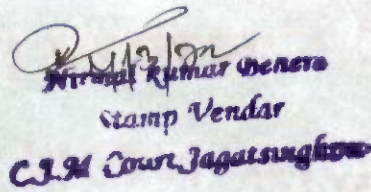 Nirmal Kumar Benera
Stamp Vendar
C.J.M Court, Jagatsinghpur